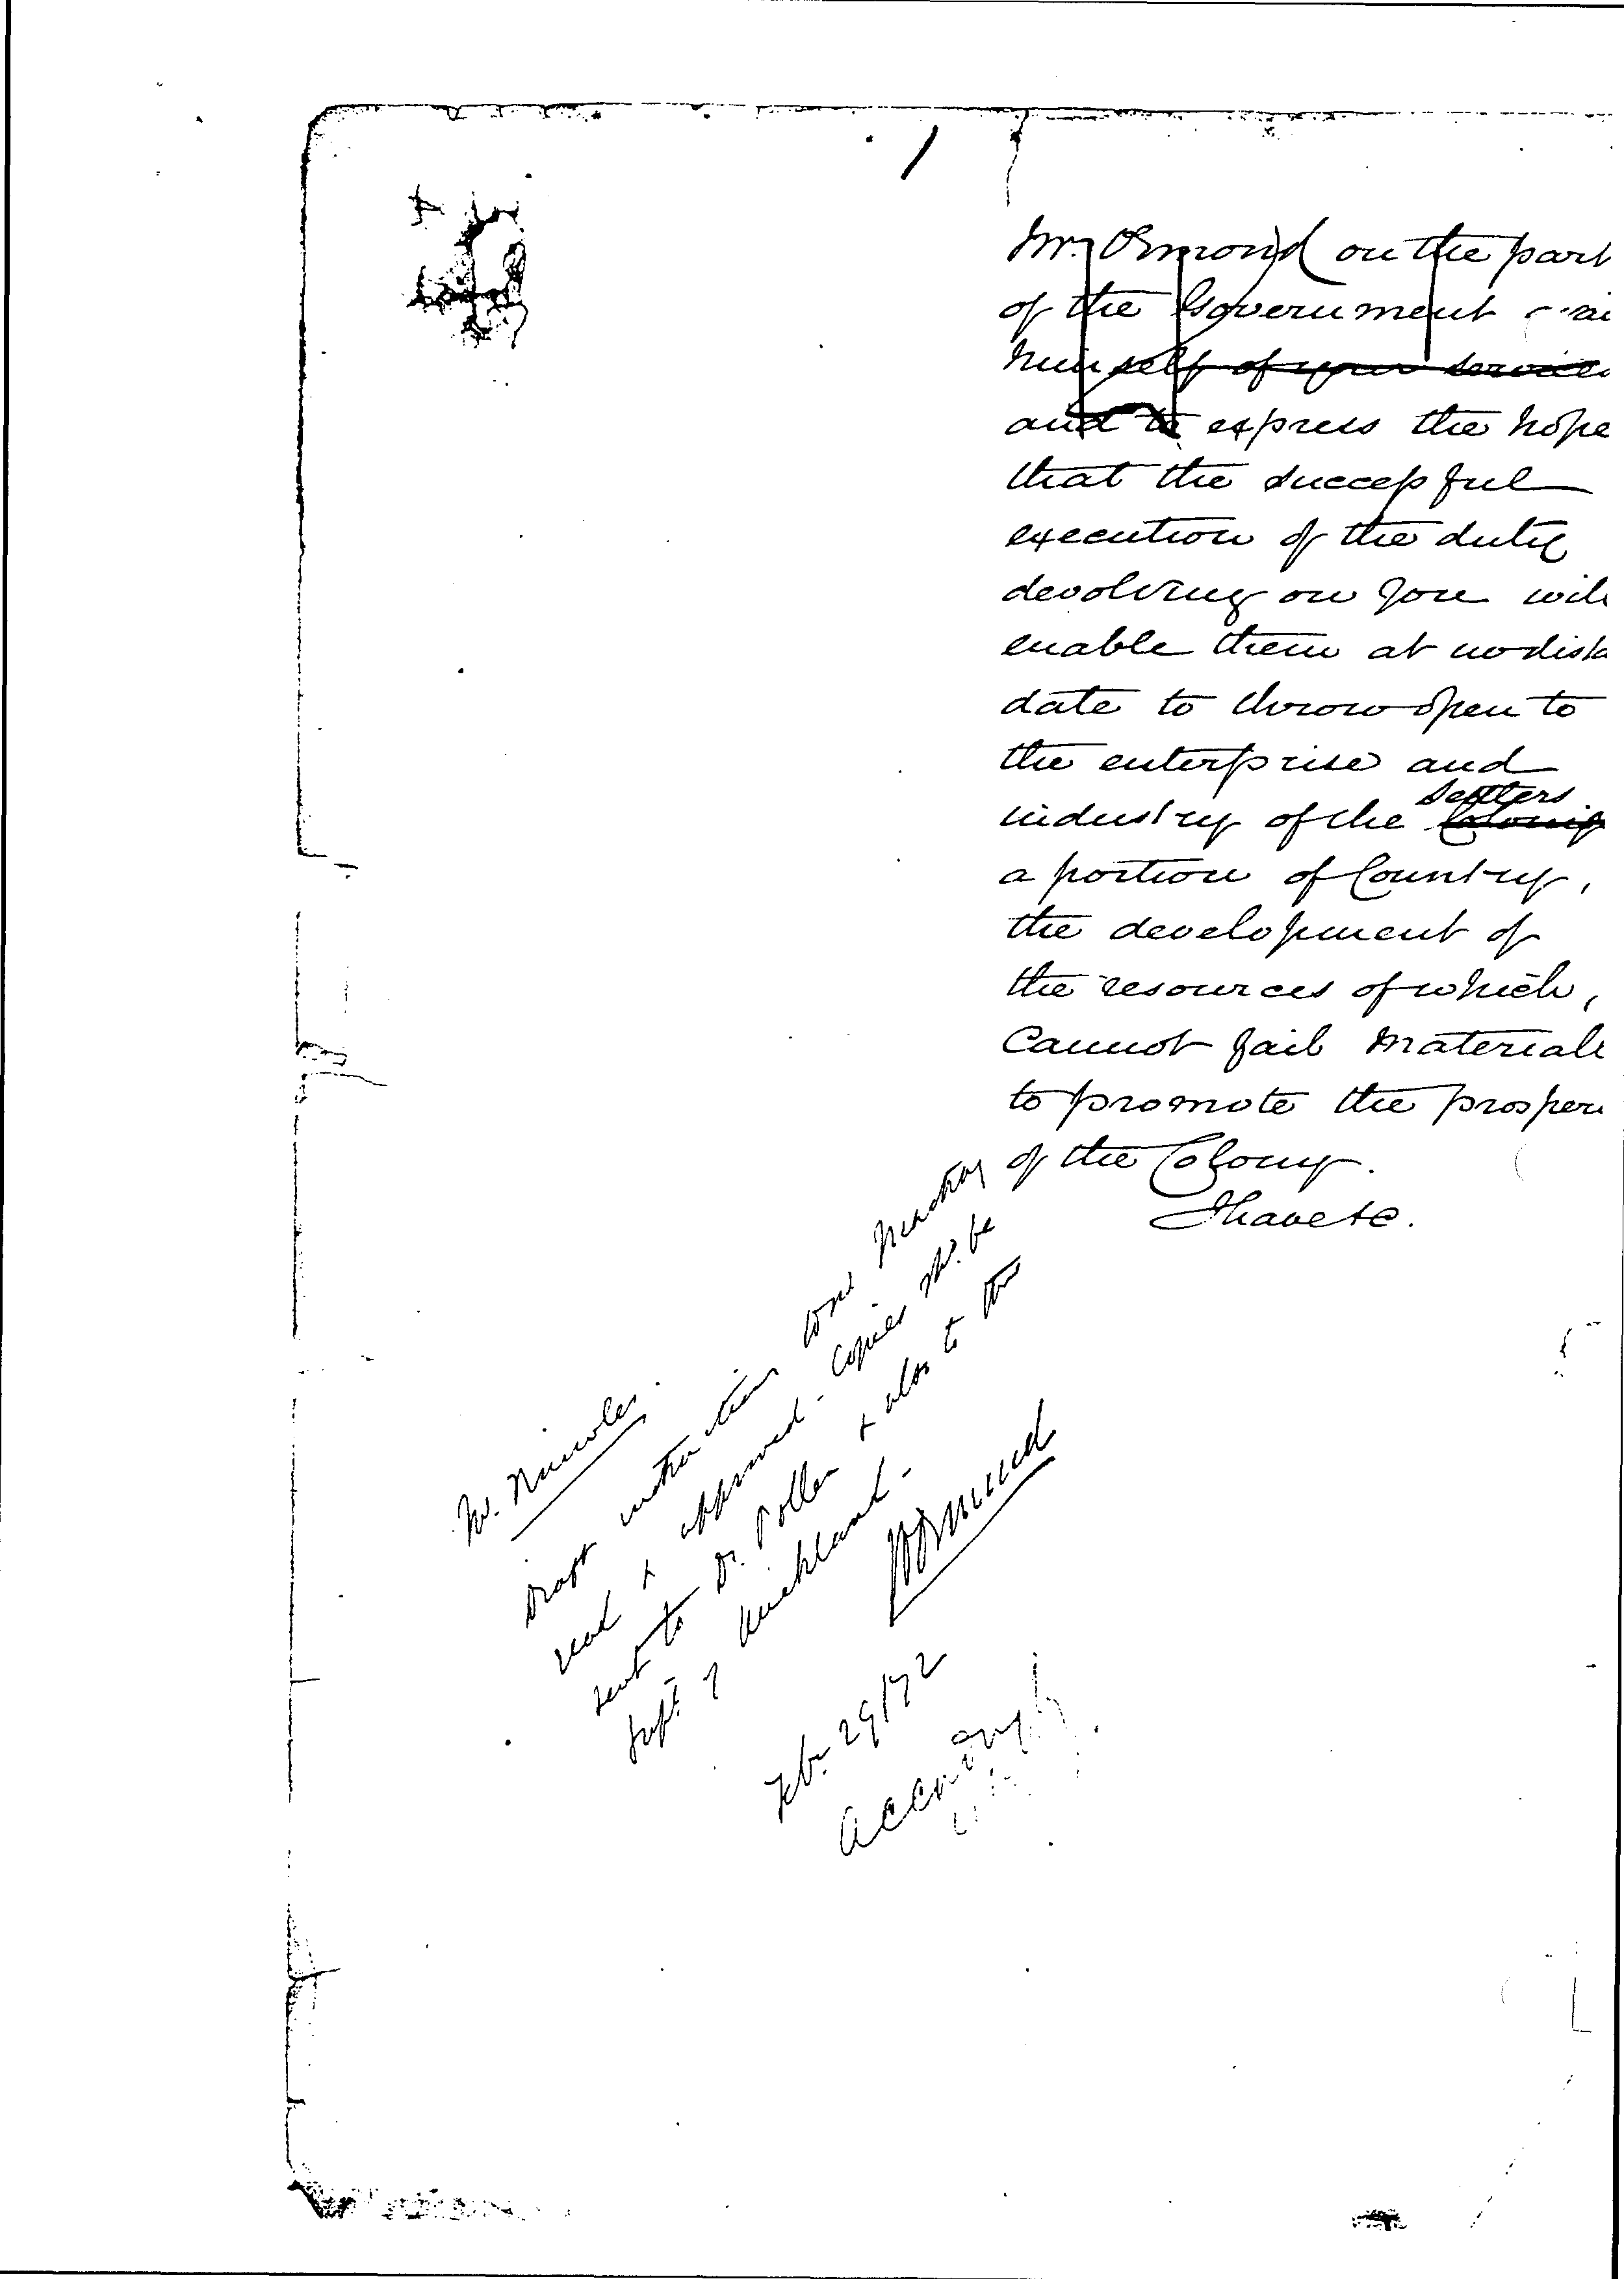 Mr. Ormond on the part
of the Government
himself of your service
and to express the hope
that the successful
execution of the dutie
devolving on you will
enable them at no dista
date to throw open to
the enterprise and
industry of the settlers Colony
a portion of Country,
the development of
the resources of which,
Cannot fail material
to promote the prosperi
of the Colony.
I have &c.
Draft instructions Capt. Mackay
read & approved. Copies shd. be
sent to Dr. Pollen & also to the
Supt. of Auckland.
JDOrmond
Feb. 29/72